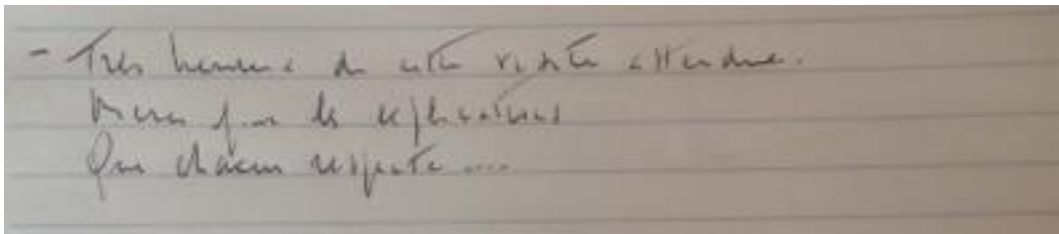 - Très heureuse de cette visite attendue.
Merci pour les explications
Que chacun respecte ....